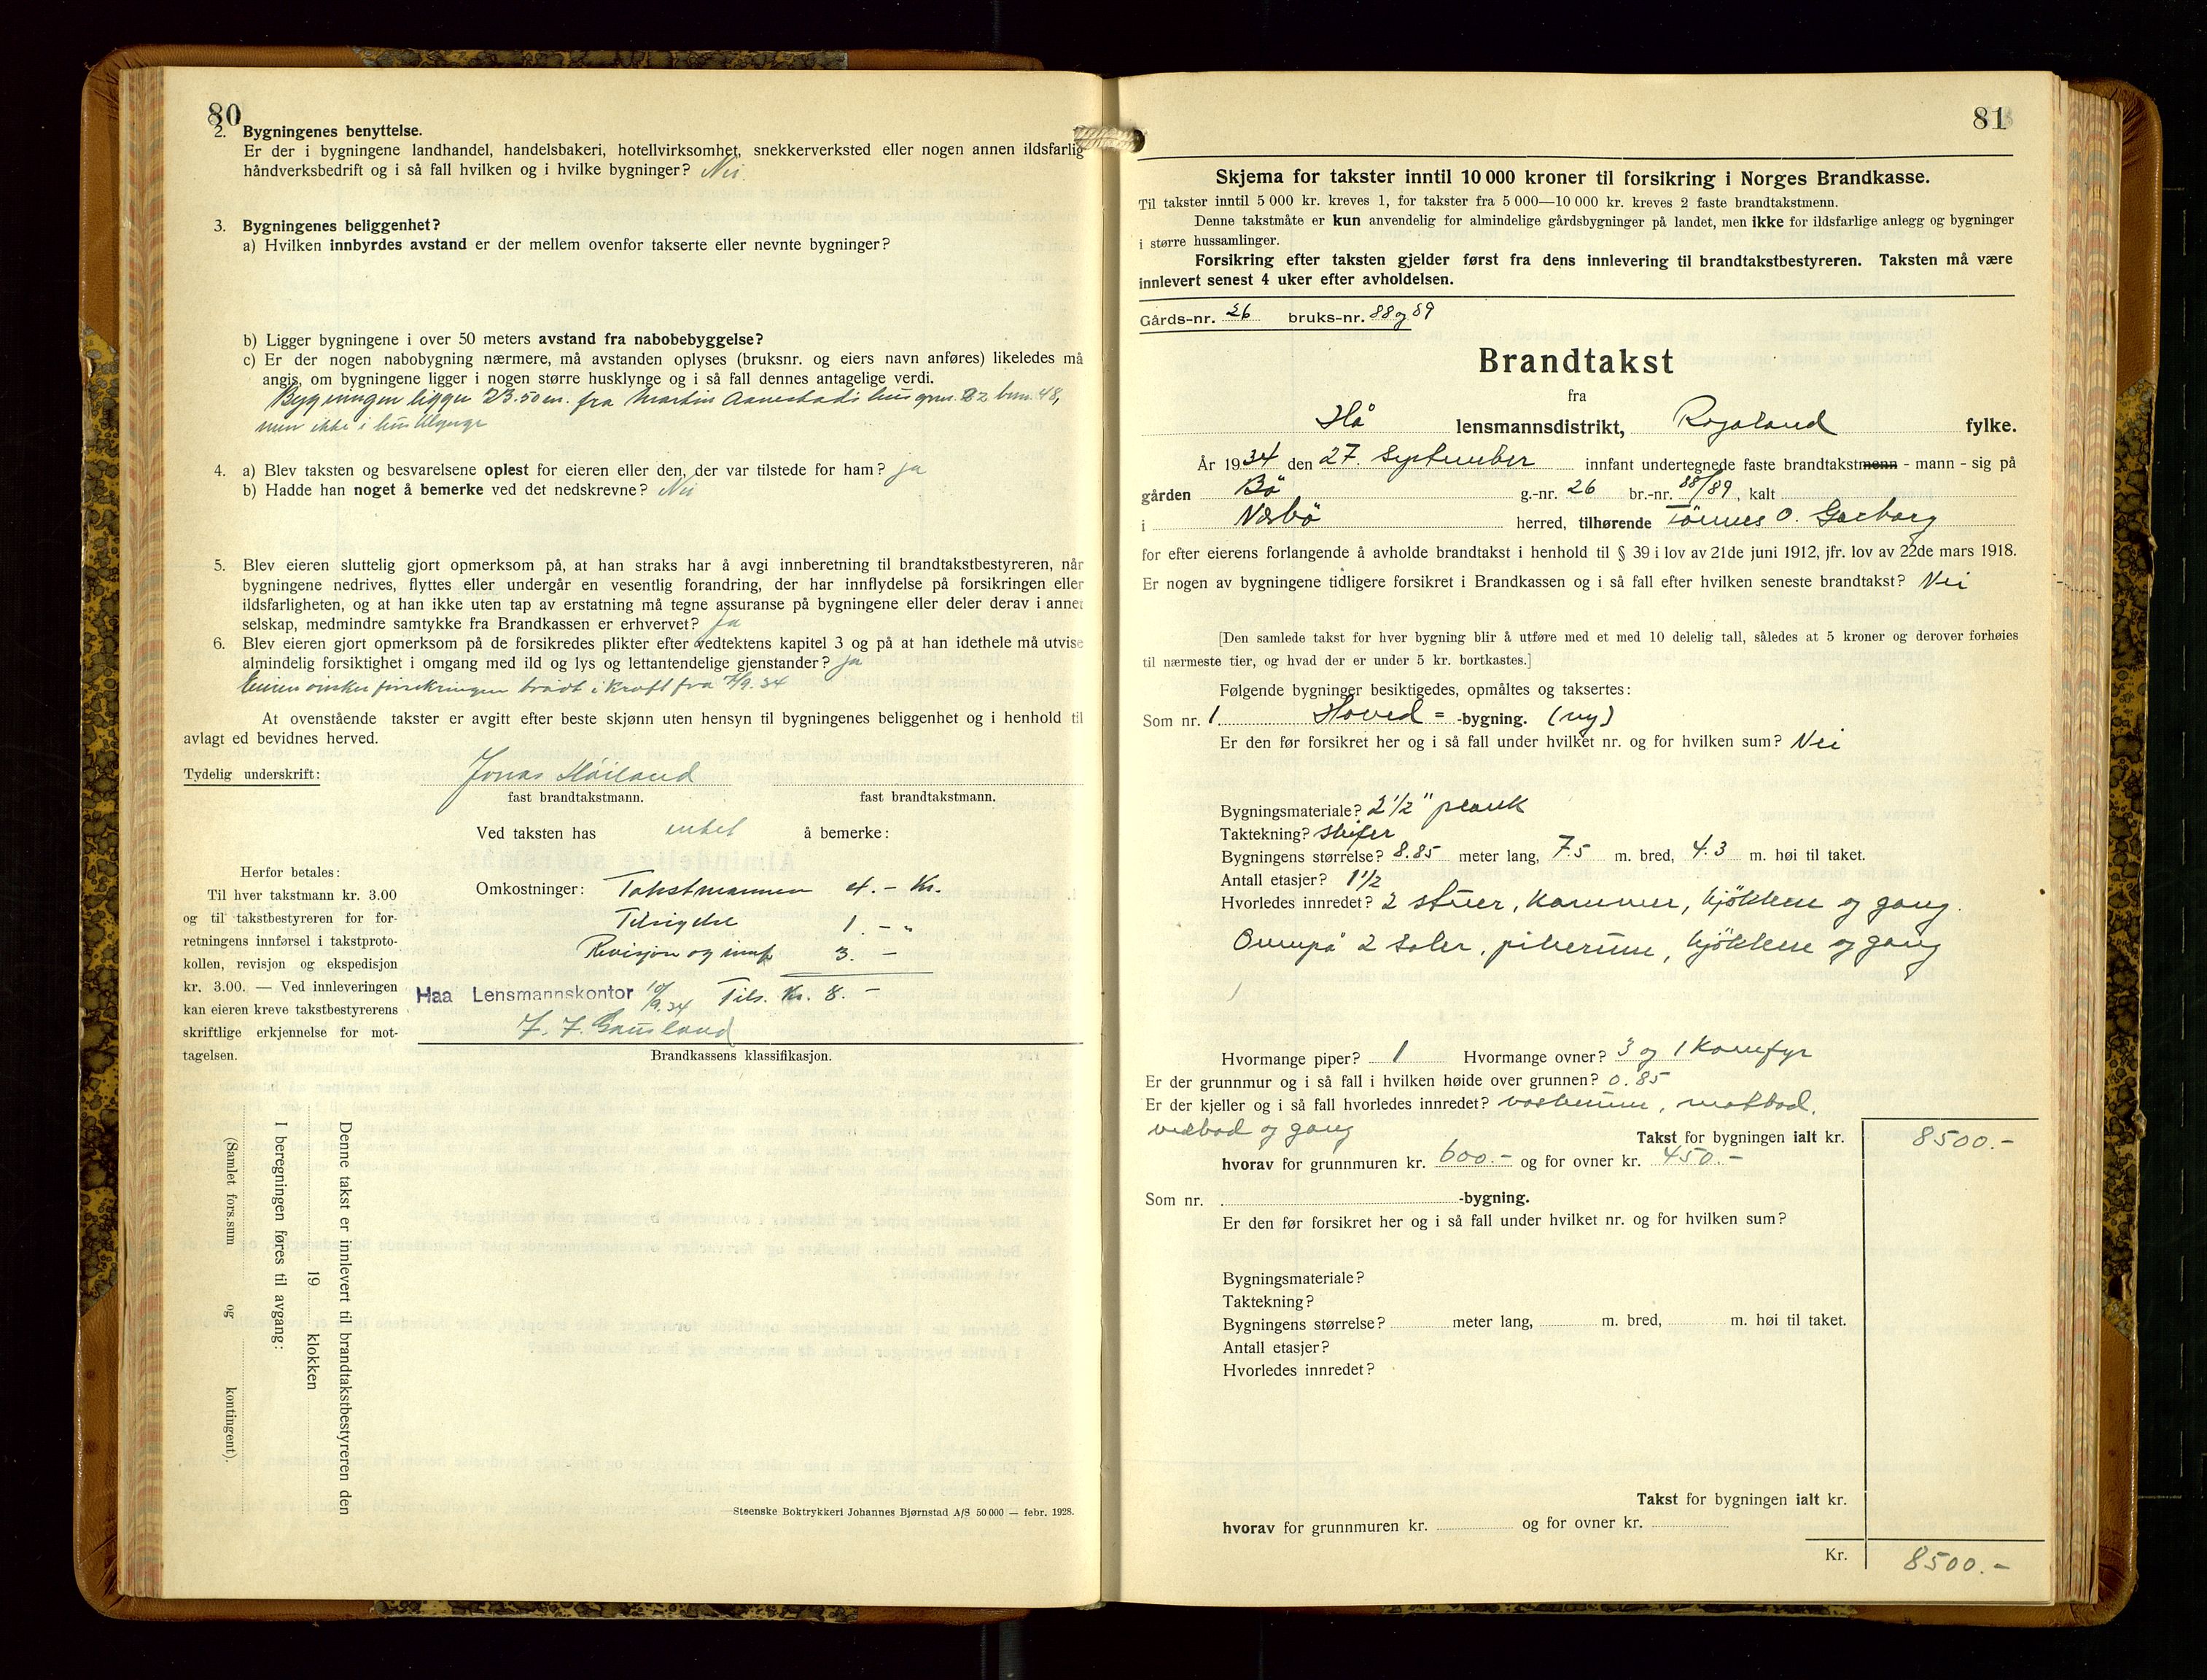 80
2. Bygningenes benyttelse.
Er der i bygningene landhandel, handelsbakeri, hotellvirksomhet, snekkerverksted eller nogen annen ildsfarlig
håndverksbedrift og i så fall hvilken og i hvilke bygninger? Nei
3. Bygningenes beliggenhet?
a) Hvilken innbyrdes avstand er der mellem ovenfor takserte eller nevnte bygninger?
b) Ligger bygningene i over 50 meters avstand fra nabobebyggelse?
c) Er der nogen nabobygning nærmere, må avstanden oplyses (bruksnr. og eiers navn anføres) likeledes må
angis, om bygningene ligger i nogen større husklynge og i så fall dennes antagelige verdi.
Bygningen ligger 23.50 m. fra Martin Aanestads hus gnr. 22 bnr. 48,
men ikke i husklynge
4. a) Blev taksten og besvarelsene oplest for eieren eller den, der var tilstede for ham? ja
b) Hadde han noget å bemerke ved det nedskrevne? Nei
5. Blev eieren sluttelig gjort opmerksom på, at han straks har å avgi innberetning til brandtakstbestyreren, når
bygningene nedrives, flyttes eller undergår en vesentlig forandring, der har innflydelse på forsikringen eller
ildsfarligheten, og at han ikke uten tap av erstatning må tegne assuranse på bygningene eller deler derav i annet
selskap, medmindre samtykke fra Brandkassen er erhvervet? ja
6. Blev eieren gjort opmerksom på de forsikredes plikter efter vedtektens kapitel 3 og på at han idethele må utvise
almindelig forsiktighet i omgang med ild og lys og lettantendelige gjenstander? ja
Eieren ønsker forsikringen trådt i kraft fra 7/9.34
At ovenstående takster er avgitt efter beste skjønn uten hensyn til bygningenes beliggenhet og i henhold til
avlagt ed bevidnes herved.
Tydelig underskrift: Jonas Høiland
fast brandtakstmann. fast brandtakstmann.
Ved taksten has intet å bemerke:
Herfor betales:
Til hver takstmann kr. 3.00
og til takstbestyreren for for-
retningens innførsel i takstproto-
kollen, revisjon og ekspedisjon
kr. 3.00. — Ved innleveringen
kan eieren kreve takstbestyrerens
skriftlige erkjennelse for mot-
tagelsen.
Omkostninger: Takstmannen 4. - Kr.
Tilsigelse 1. - "
Revisjon og innf. 3. -
Haa Lensmannskontor 10/9.34 Tils. Kr. 8. -
Gausland
Brandkassens klassifikasjon.
Denne takst er innlevert til brandtakstbestyreren den
19 klokken
I beregningen føres til avgang:
(Samlet fors.sum og kontingent).
Steenske Boktrykkeri Johannes Bjørnstad A/S 50 000 — febr. 1928.
81
Skjema for takster inntil 10 000 kroner til forsikring i Norges Brandkasse.
Til takster inntil 5 000 kr. kreves 1, for takster fra 5 000—10 000 kr. kreves 2 faste brandtakstmenn.
Denne takstmåte er kun anvendelig for almindelige gårdsbygninger på landet, men ikke for ildsfarlige anlegg og bygninger
i større hussamlinger.
Forsikring efter taksten gjelder først fra dens innlevering til brandtakstbestyreren. Taksten må være
innlevert senest 4 uker efter avholdelsen.
Gårds-nr. 26 bruks-nr. 88 og 89
Brandtakst
fra
Hå lensmannsdistrikt, Rogaland fylke.
År 1934 den 27. September innfant undertegnede faste brandtakstmenn - mann - sig på
gården Bø g.-nr. 26 br.-nr. 88/89, kalt
i Nærbø herred, tilhørende Tønnes O. Garborg
for efter eierens forlangende å avholde brandtakst i henhold til § 39 i lov av 21de juni 1912, jfr. lov av 22de mars 1918.
Er nogen av bygningene tidligere forsikret i Brandkassen og i så fall efter hvilken seneste brandtakst? Nei
[Den samlede takst for hver bygning blir å utføre med et med 10 delelig tall, således at 5 kroner og derover forhøies
til nærmeste tier, og hvad der er under 5 kr. bortkastes.]
Følgende bygninger besiktigedes, opmåltes og taksertes:
Som nr. 1 Hoved= -bygning. (ny)
Er den før forsikret her og i så fall under hvilket nr. og for hvilken sum? Nei
Bygningsmateriale? 2 1/2" plank
Taktekning? skifer
Bygningens størrelse? 8.85 meter lang, 7.5 m. bred, 4.3 m. høi til taket.
Antall etasjer? 1 1/2
Hvorledes innredet? 2 stuer, kammer, kjøkken og gang.
Ovenpå 2 saler, pikerum, kjøkken og gang
Hvormange piper? 1 Hvormange ovner? 3 og 1 komfyr
Er der grunnmur og i så fall i hvilken høide over grunnen? 0.85
Er der kjeller og i så fall hvorledes innredet? vaskerum, matbod,
vedbod og gang
Takst for bygningen ialt kr. 8500.-
hvorav for grunnmuren kr. 600.- og for ovner kr. 450.-
Som nr. -bygning.
Er den før forsikret her og i så fall under hvilket nr. og for hvilken sum?
Bygningsmateriale?
Taktekning?
Bygningens størrelse? meter lang, m. bred, m. høi til taket.
Antall etasjer?
Hvorledes innredet?
Takst for bygningen ialt kr.
hvorav for grunnmuren kr. og for ovner kr.
Kr. 8500.-